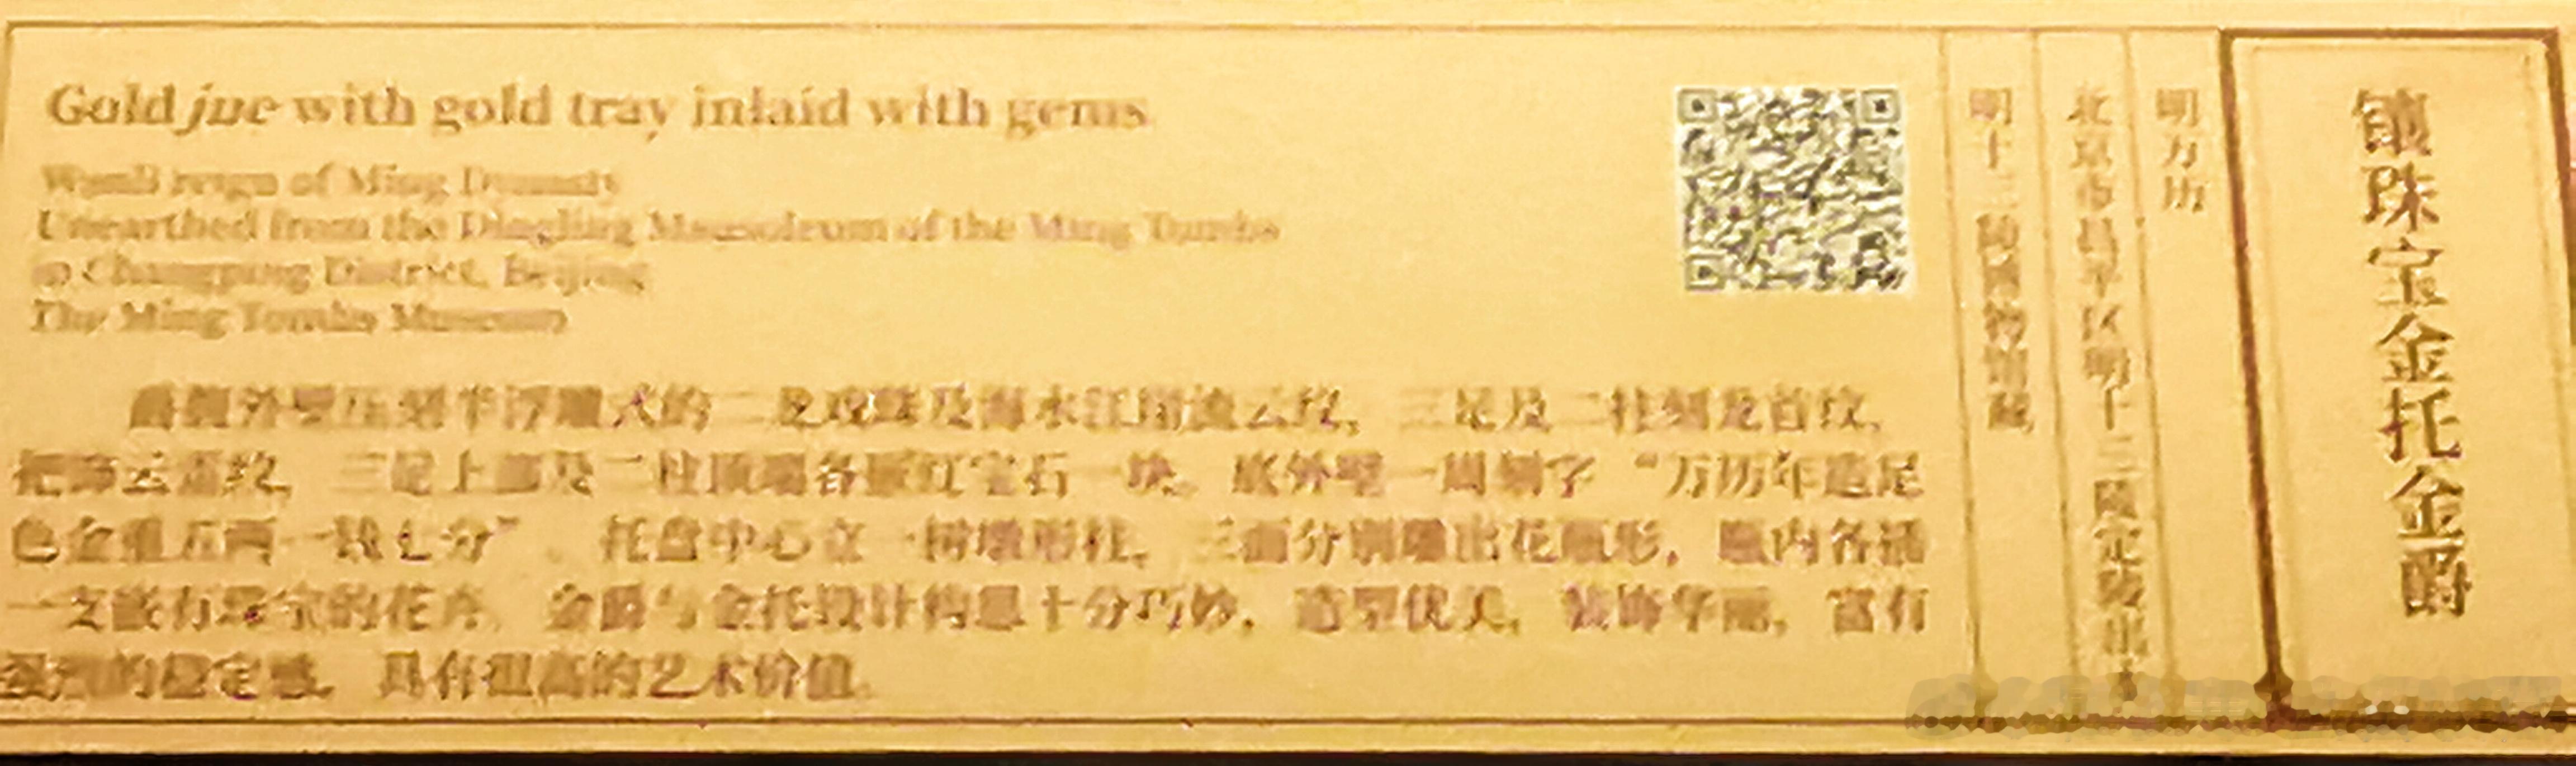 Gold jue with gold tray inlaid with gems
Wanli reign of Ming Dynasty
Unearthed from the Dingling Mausoleum of the Ming Tombs
in Changping District, Beijing
The Ming Tombs Museum
镶珠宝金托金爵
明万历
北京市昌平区明十三陵定陵出土
明十三陵博物馆藏
外壁压刻半浮雕式的二龙戏珠及海水江崖流云纹，三足及二柱刻龙首纹，
把饰云雷纹，三足上部及二柱顶端各嵌红宝石一块，底外壁一周刻字“万历年造足
色金重五两一钱七分”。托盘中心立一树墩形柱，三面分别雕出花瓶形，瓶内各插
一支嵌有珠宝的花卉。金爵与金托设计构思十分巧妙，造型优美，装饰华丽，富有
强烈的稳定感，具有很高的艺术价值。